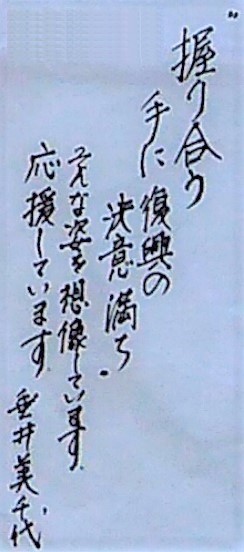 〃
握り合う
手に復興の
決意満ち.
そんな姿を想像しています
応援しています
垂井美千代